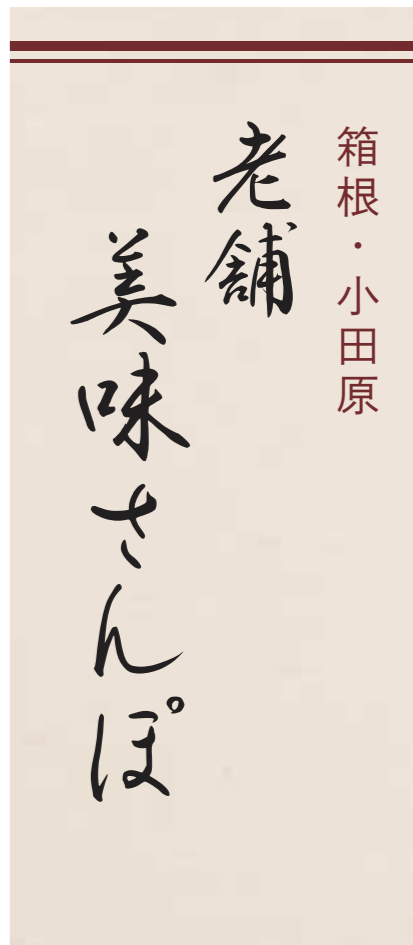 箱根・小田原
老舗
美味さんぽ